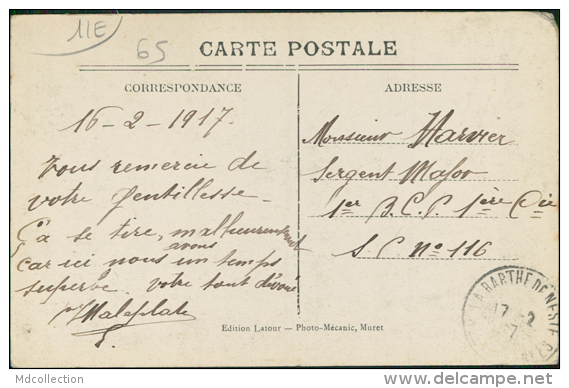 11E
65
CARTE POSTALE
CORRESPONDANCE
ADRESSE
16-2-1917.
Vous remercie de
votre gentillesse.
Ça se tire, malheureusement
car ici nous avons un temps
superbe. Votre tout dévoué
Monsieur Harvier
Sergent Major
1er B.C.P. 1ère Cie
S.P. No 116
LA BARTHE DE NESTE
17-2
17
Edition Latour — Photo-Mécanic, Muret
Mdcollection
http://www.delcampe.net